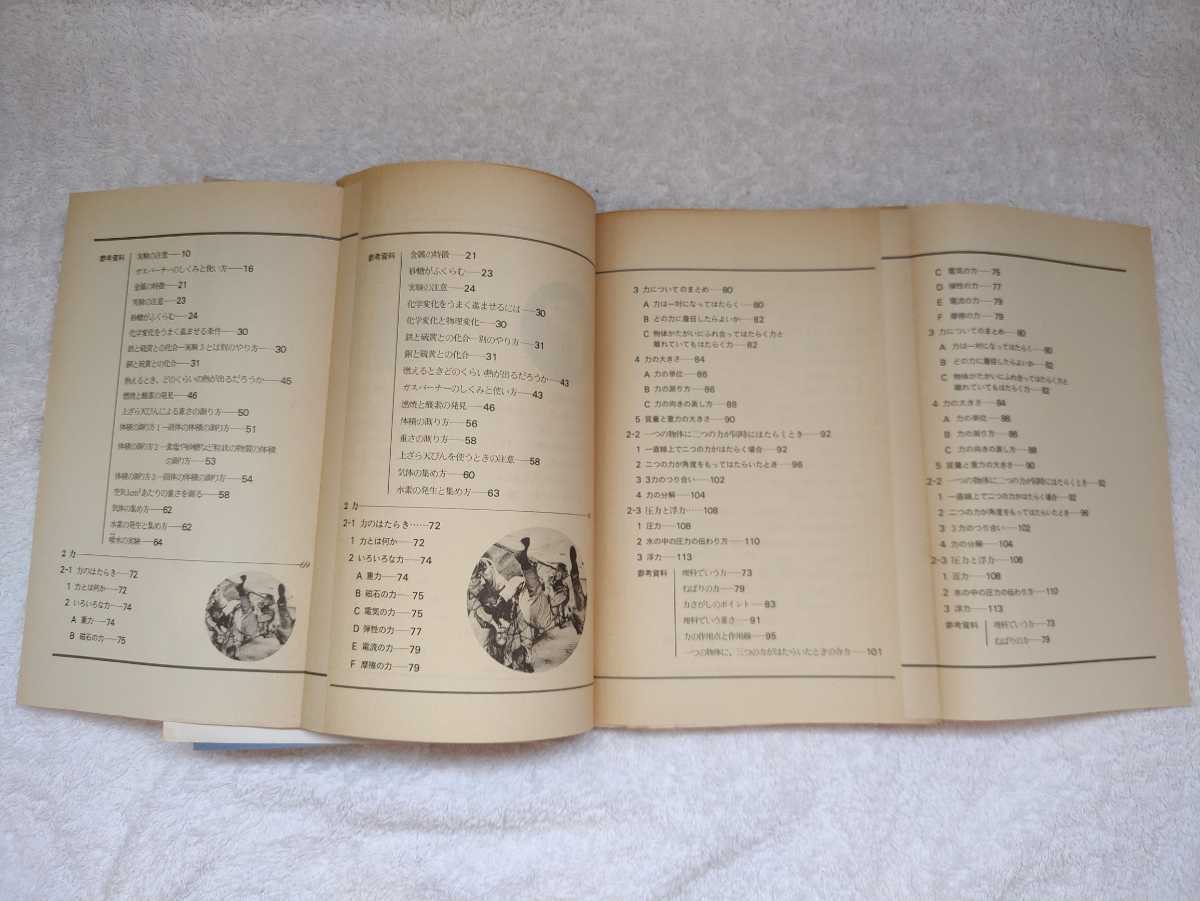 参考資料
実験の注意――10
ガスバーナーのしくみと使い方――16
金属の特徴――21
実験の注意――23
砂糖がふくらむ――24
化学変化をうまく進ませる条件――30
鉄と硫黄との化合―実験3とは別のやり方――30
銅と硫黄との化合――31
燃えるとき，どのくらいの熱が出るだろうか――45
燃焼と酸素の発見――46
上ざら天びんによる重さの測り方――50
体積の測り方1―液体の体積の測り方――51
体積の測り方2―食塩や砂糖など粒状の物質の体積
の測り方――53
体積の測り方3―固体の体積の測り方――54
空気1cm³あたりの重さを測る――58
気体の集め方――62
水素の発生と集め方――62
吸水の実験――64
2 力――69
2-1 力のはたらき――72
1 力とは何か――72
2 いろいろな力――74
A 重力――74
B 磁石の力――75
参考資料
金属の特徴――21
砂糖がふくらむ――23
実験の注意――24
化学変化をうまく進ませるには――30
化学変化と物理変化――30
鉄と硫黄との化合―別のやり方――31
銅と硫黄との化合――31
燃えるときどのくらい熱が出るだろうか――43
ガスバーナーのしくみと使い方――43
燃焼と酸素の発見――46
体積の測り方――56
重さの測り方――58
上ざら天びんを使うときの注意――58
気体の集め方――60
水素の発生と集め方――63
2 力――
2-1 力のはたらき……72
1 力とは何か――72
2 いろいろな力――74
A 重力――74
B 磁石の力――75
C 電気の力――75
D 弾性の力――77
E 電流の力――79
F 摩擦の力――79
3 力についてのまとめ――80
A 力は一対になってはたらく――80
B どの力に着目したらよいか――82
C 物体がたがいにふれ合ってはたらく力と
離れていてもはたらく力――82
4 力の大きさ――84
A 力の単位――86
B 力の測り方――86
C 力の向きの表し方――88
5 質量と重力の大きさ――90
2-2 一つの物体に二つの力が同時にはたらくとき――92
1 一直線上で二つの力がはたらく場合――92
2 二つの力が角度をもってはたらいたとき――96
3 3力のつり合い――102
4 力の分解――104
2-3 圧力と浮力――108
1 圧力――108
2 水の中の圧力の伝わり方――110
3 浮力――113
参考資料
理科でいう力――73
ねばりの力――79
力さがしのポイント――83
理科でいう重さ――91
力の作用点と作用線――95
一つの物体に，三つの力がはたらいたときの合力――101
C 電気の力――75
D 弾性の力――77
E 電流の力――79
F 摩擦の力――79
3 力についてのまとめ――80
A 力は一対になってはたらく――80
B どの力に着目したらよいか――82
C 物体がたがいにふれ合ってはたらく力と
離れていてもはたらく力――82
4 力の大きさ――84
A 力の単位――86
B 力の測り方――86
C 力の向きの表し方――88
5 質量と重力の大きさ――90
2-2 一つの物体に二つの力が同時にはたらくとき――92
1 一直線上で二つの力がはたらく場合――92
2 二つの力が角度をもってはたらいたとき――96
3 3力のつり合い――102
4 力の分解――104
2-3 圧力と浮力――108
1 圧力――108
2 水の中の圧力の伝わり方――110
3 浮力――113
参考資料
理科でいう力――73
ねばりの力――79